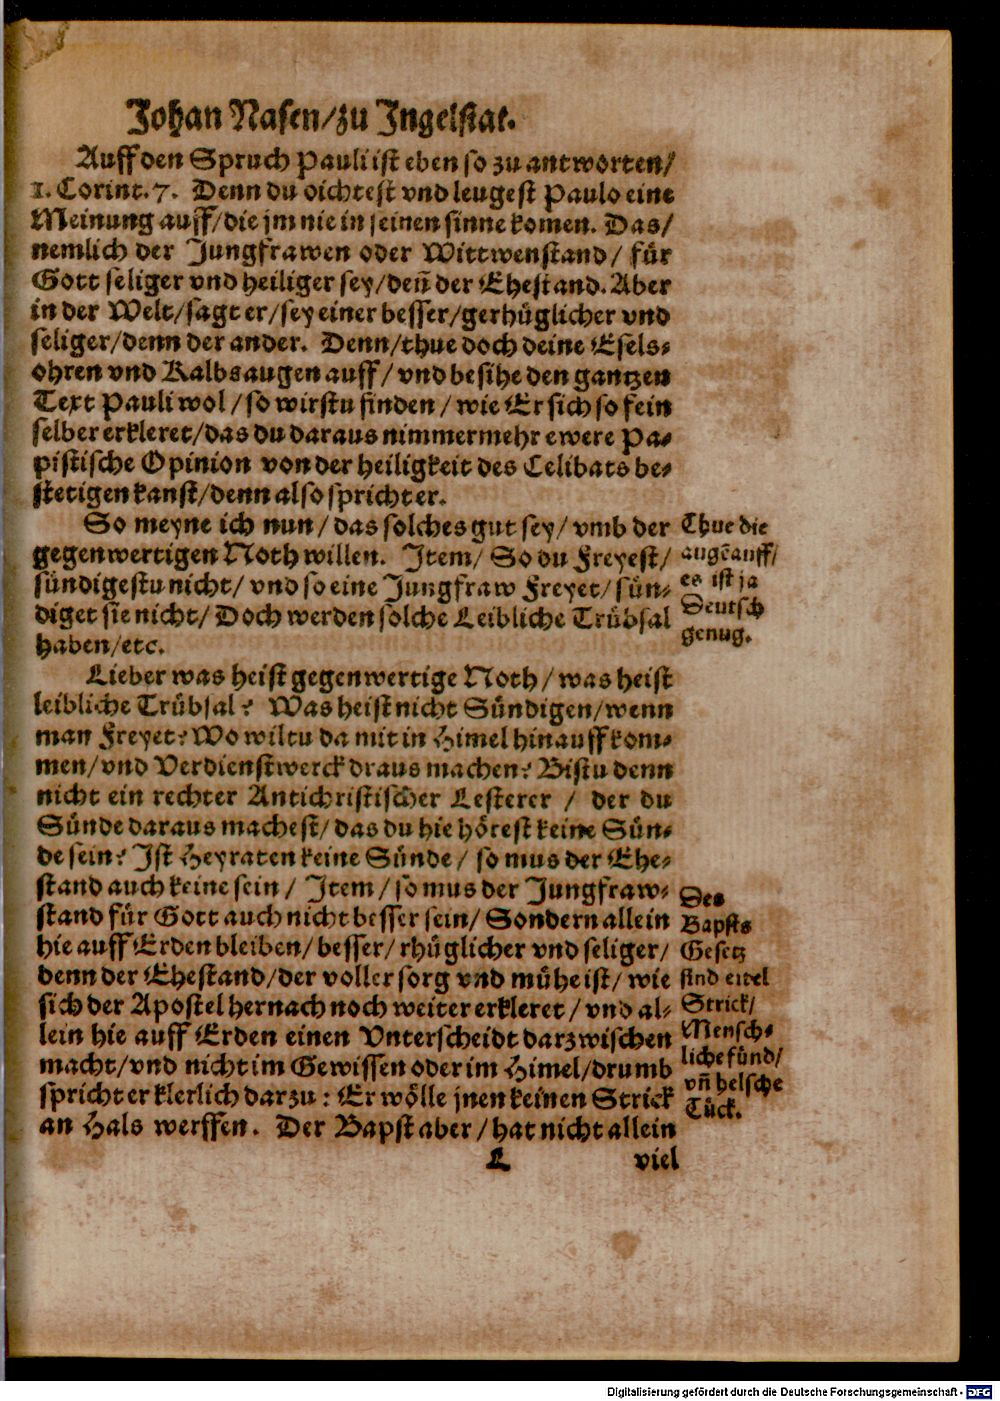 Johan Nasen/zu Ingelstat.
Auff den Spruch Pauli ist eben so zu antworten/
1. Corint. 7. Denn du dichtest vnd leugest Paulo eine
Meinung auff/die jm nie in seinen sinne komen. Das/
nemlich der Jungfrawen oder Wittwenstand/ für
Gott seliger vnd heiliger sey/deñ der Ehestand. Aber
in der Welt/sagt er/sey einer besser/gerhüglicher vnd
seliger/denn der ander. Denn/thue doch deine Esels-
ohren vnd Kalbsaugen auff/vnd besihe den gantzen
Text Pauli wol/so wirstu finden/wie Er sich so fein
selber erkleret/das du daraus nimmermehr ewere Pa-
pistische Opinion von der heiligkeit des Celibats be-
stetigen kanst/denn also spricht er.
So meyne ich nun/das solches gut sey/vmb der
gegenwertigen Noth willen. Item/ So du Freyest/
sündigestu nicht/ vnd so eine Jungfraw Freyet/ sün-
diget sie nicht/Doch werden solche Leibliche Trübsal
haben/etc.
Thue die
augẽ auff/
es ist ja
Deutsch
genug.
Lieber was heist gegenwertige Noth/was heist
leibliche Trübsal? Was heist nicht Sündigen/wenn
man Freyet? Wo wiltu da mit in Himel hinauff kom-
men/vnd Verdienstwerck draus machen? Bistu denn
nicht ein rechter Antichristischer Lesterer / der du
Sünde daraus machest/das du hie hörest keine Sün-
de sein? Ist Heyraten keine Sünde/ so mus der Ehe-
stand auch keine sein/ Item/so mus der Jungfraw-
stand für Gott auch nicht besser sein/Sondern allein
hie auff Erden bleiben/besser/rhüglicher vnd seliger/
denn der Ehestand/der voller sorg vnd mühe ist/wie
sich der Apostel hernach noch weiter erkleret/vnd al-
lein hie auff Erden einen Vnterscheidt darzwischen
macht/vnd nicht im Gewissen oder im Himel/drumb
spricht er klerlich darzu: Er wölle jnen keinen Strick
an Hals werffen. Der Bapst aber/hat nicht allein
Des
Bapsts
Gesetz
sind eitel
Strick/
Mensch-
liche fünd/
vñ helsche
Tück.
L viel
Digitalisierung gefördert durch die Deutsche Forschungsgemeinschaft - DFG